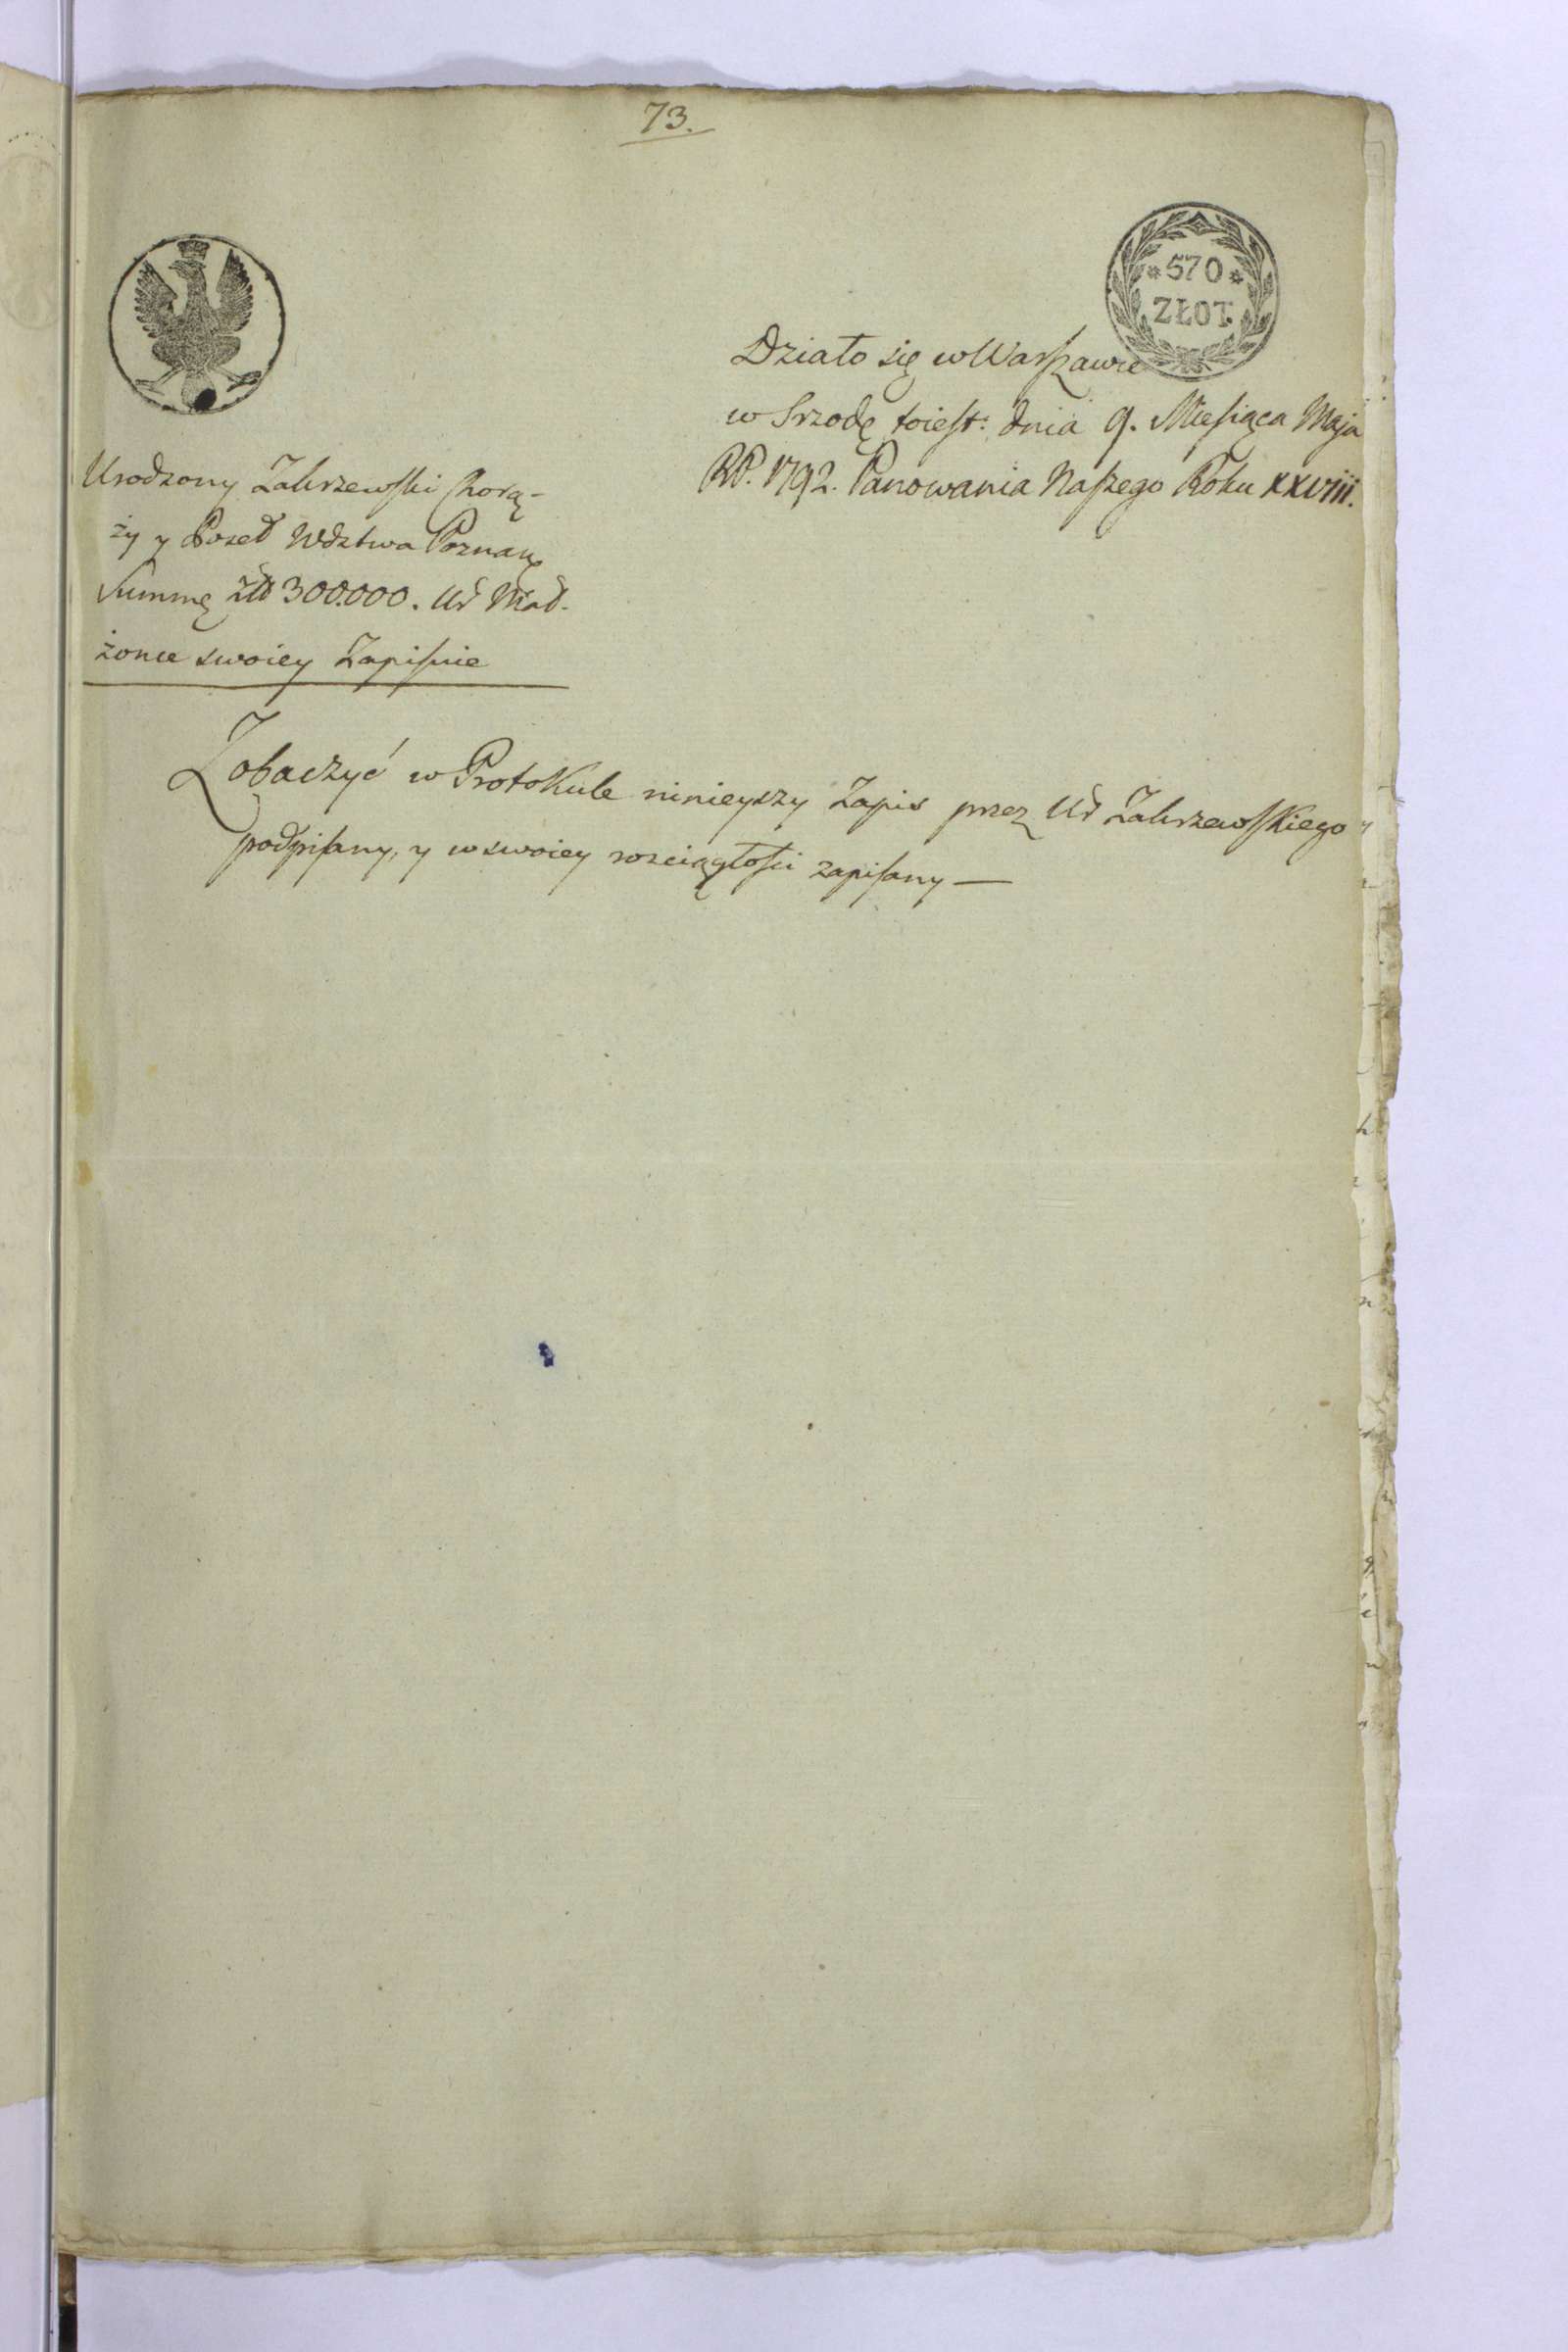 73.
*570*
ZŁOT.
Działo się w Warszawie
w Srzodę toiest: dnia 9. Miesiąca Maja
RP. 1792. Panowania Naszego Roku XXVIII.
Urodzony Zakrzewski Chorą-
ży y Poseł Wdztwa Poznań
Summę złł 300.000. Ur Mał-
żonce swoiey Zapisuie
Zobaczyć w Protokule ninieyszy Zapis przez Ur Zakrzewskiego
podpisany, y w swoiey rozciągłości zapisany —